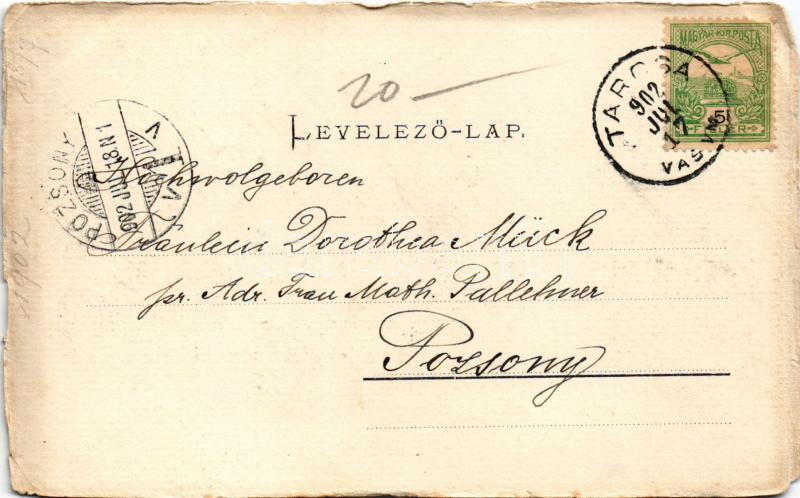 20—
LEVELEZŐ-LAP.
MAGYAR KIR. POSTA
5
FILLÉR
TARCSA
902
JUL
VAS VM
POZSONY
902 JUL 18 N 1
Hochwolgeboren
Fräulein Dorothea Mück
pr. Adr. Frau Math. Pallehner
Pozsony
18/7
1902